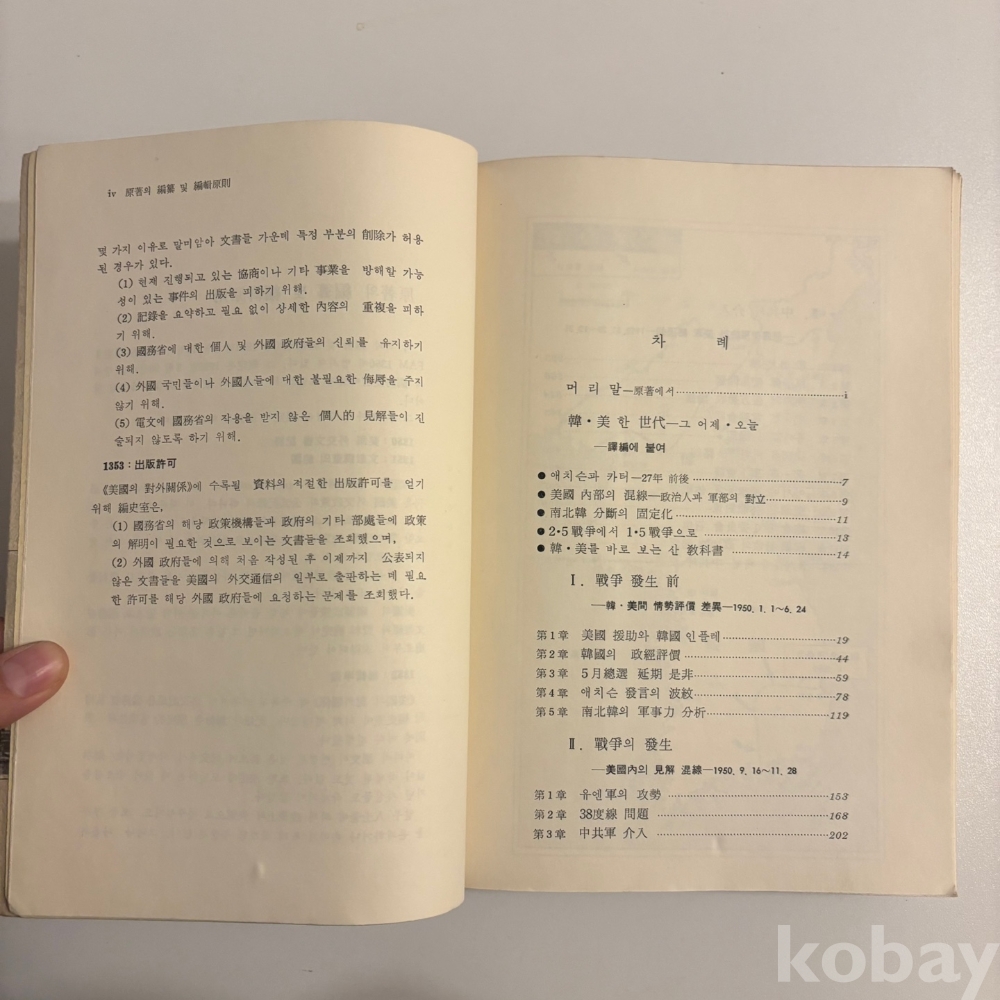 iv 原著의 編纂 및 編輯原則
몇 가지 이유로 말미암아 文書들 가운데 특정 부분의 削除가 허용
된 경우가 있다.
(1) 현재 진행되고 있는 協商이나 기타 事業을 방해할 가능
성이 있는 事件의 出版을 피하기 위해.
(2) 記錄을 요약하고 필요 없이 상세한 內容의 重複을 피하
기 위해.
(3) 國務省에 대한 個人 및 外國 政府들의 신뢰를 유지하기
위해.
(4) 外國 국민들이나 外國人들에 대한 불필요한 侮辱을 주지
않기 위해.
(5) 電文에 國務省의 작용을 받지 않은 個人的 見解들이 진
술되지 않도록 하기 위해.
1353 : 出版許可
《美國의 對外關係》에 수록될 資料의 적절한 出版許可를 얻기
위해 編史室은,
(1) 國務省의 해당 政策機構들과 政府의 기타 部處들에 政策
의 解明이 필요한 것으로 보이는 文書들을 조회했으며,
(2) 外國 政府들에 의해 처음 작성된 후 이제까지 公表되지
않은 文書들을 美國의 外交通信의 일부로 出版하는 데 필요
한 許可를 해당 外國 政府들에 요청하는 문제를 조회했다.
차 례
머 리 말—原著에서 i
韓·美 한 世代—그 어제·오늘
—譯編에 붙여
● 애치슨과 카터—27年 前後 7
● 美國 內部의 混線—政治人과 軍部의 對立 9
● 南北韓 分斷의 固定化 11
● 2·5戰爭에서 1·5戰爭으로 13
● 韓·美를 바로 보는 산 敎科書 14
Ⅰ. 戰爭 發生 前
—韓·美間 情勢評價 差異—1950. 1. 1~6. 24
第1章 美國 援助와 韓國 인플레 19
第2章 韓國의 政經評價 44
第3章 5月總選 延期 是非 59
第4章 애치슨 發言의 波紋 78
第5章 南北韓의 軍事力 分析 119
Ⅱ. 戰爭의 發生
—美國內의 見解 混線—1950. 9. 16~11. 28
第1章 유엔軍의 攻勢 153
第2章 38度線 問題 168
第3章 中共軍 介入 202
kobay